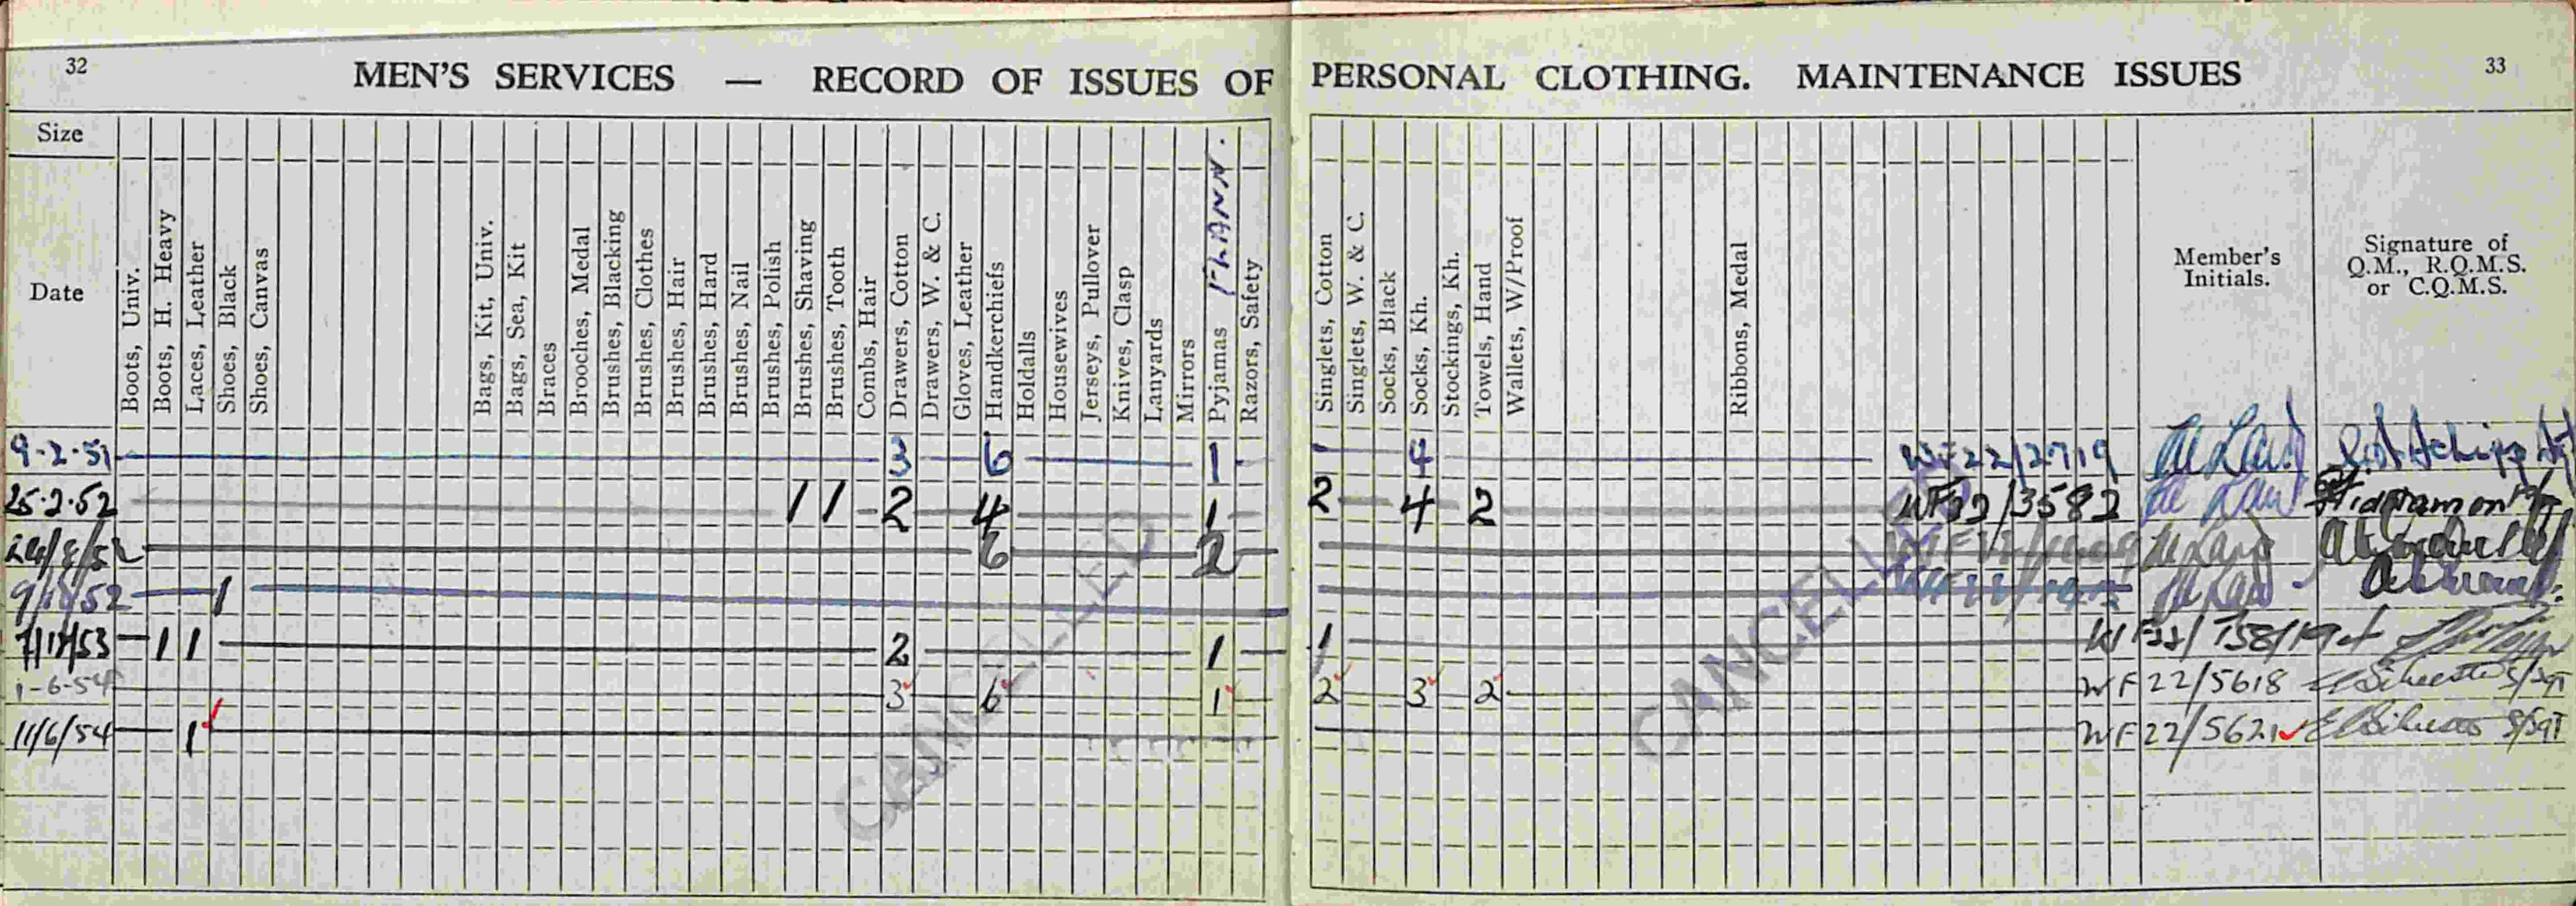 32
MEN'S SERVICES — RECORD OF ISSUES OF PERSONAL CLOTHING. MAINTENANCE ISSUES
33
Size
Date
Boots, Univ.
Boots, H. Heavy
Laces, Leather
Shoes, Black
Shoes, Canvas
Bags, Kit, Univ.
Bags, Sea, Kit
Braces
Brooches, Medal
Brushes, Blacking
Brushes, Clothes
Brushes, Hair
Brushes, Hard
Brushes, Nail
Brushes, Polish
Brushes, Shaving
Brushes, Tooth
Combs, Hair
Drawers, Cotton
Drawers, W. & C.
Gloves, Leather
Handkerchiefs
Holdalls
Housewives
Jerseys, Pullover
Knives, Clasp
Lanyards
Mirrors
Pyjamas FLANN.
Razors, Safety
Singlets, Cotton
Singlets, W. & C.
Socks, Black
Socks, Kh.
Stockings, Kh.
Towels, Hand
Wallets, W/Proof
Ribbons, Medal
Member's
Initials.
Signature of
Q.M., R.Q.M.S.
or C.Q.M.S.
9-2-51 3 6 1 4 WF22/2719
25-2-52 1 1 2 4 1 2 4 2 WF22/3582
6 2
1
53 1 1 2 1 1
1-6-54 3 6 1 2 3 2 WF22/5618 S/Sgt
11/6/54 1 WF22/5621 S/Sgt
CANCELLED
CANCELLED